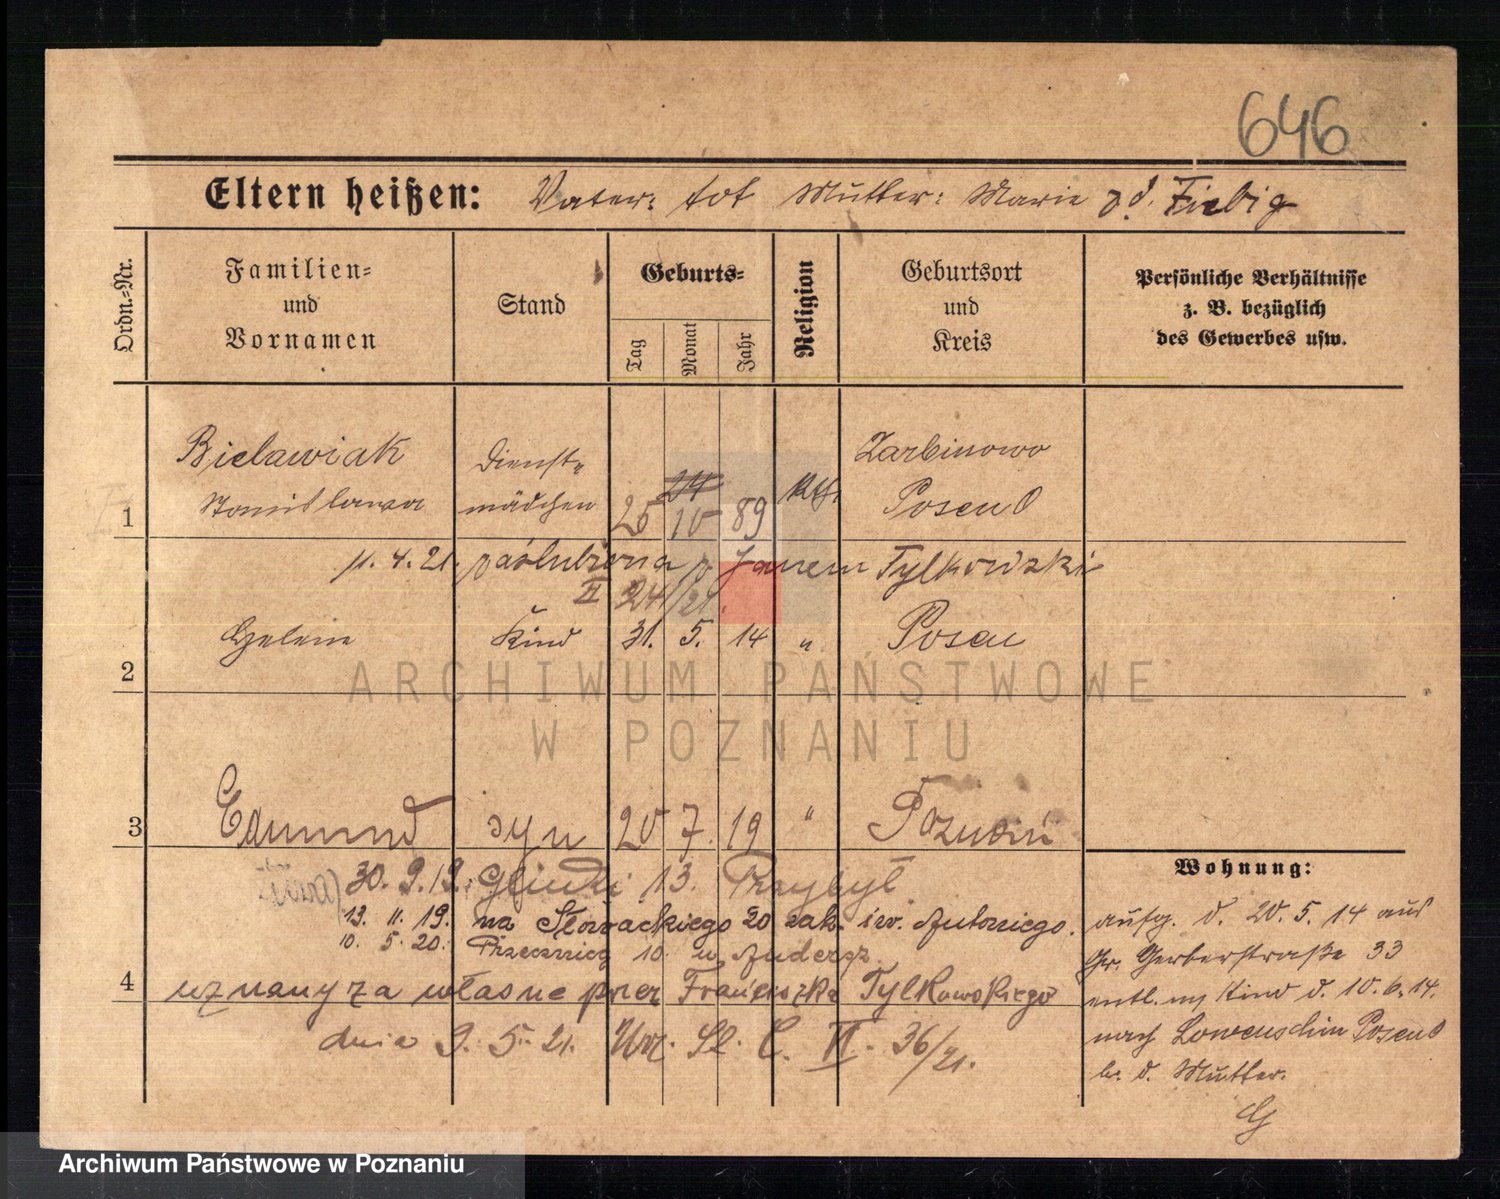 646
Eltern heißen: Vater: tot Mutter: Marie gd. Fiebig
Ordn.-Nr.
Familien-
und
Vornamen
Stand
Geburts-
Tag
Monat
Jahr
Religion
Geburtsort
und
Kreis
Persönliche Verhältnisse
z. B. bezüglich
des Gewerbes usw.
Bielawiak Dienst- Zarbinowo
1 Stanislawa mädchen 25 10 89 Kth. Posen O
11. 4. 21. zaślubiona z Janem Tylkowski
II 24/21.
2 Helene Kind 31. 5. 14 " Posen
ARCHIWUM PAŃSTWOWE
W POZNANIU
3 Edmund syn 20 7. 19 " Poznań
30. 9. 19. 13. Przybył
13. 11. 19. na Słowackiego 20 zak. św. Antoniego.
10. 5. 20. 10. u
4 uznany za własne przez Franciszka Tylkowskiego
dnia 9. 5. 21. Urz. St. C. VI. 36/21.
Wohnung:
aufg. d. 20. 5. 14 aus
Gr. Gerberstraße 33
entl. m. Kind d. 10. 6. 14.
nach Lowenschin Posen O
b. d. Mutter.
G
Archiwum Państwowe w Poznaniu